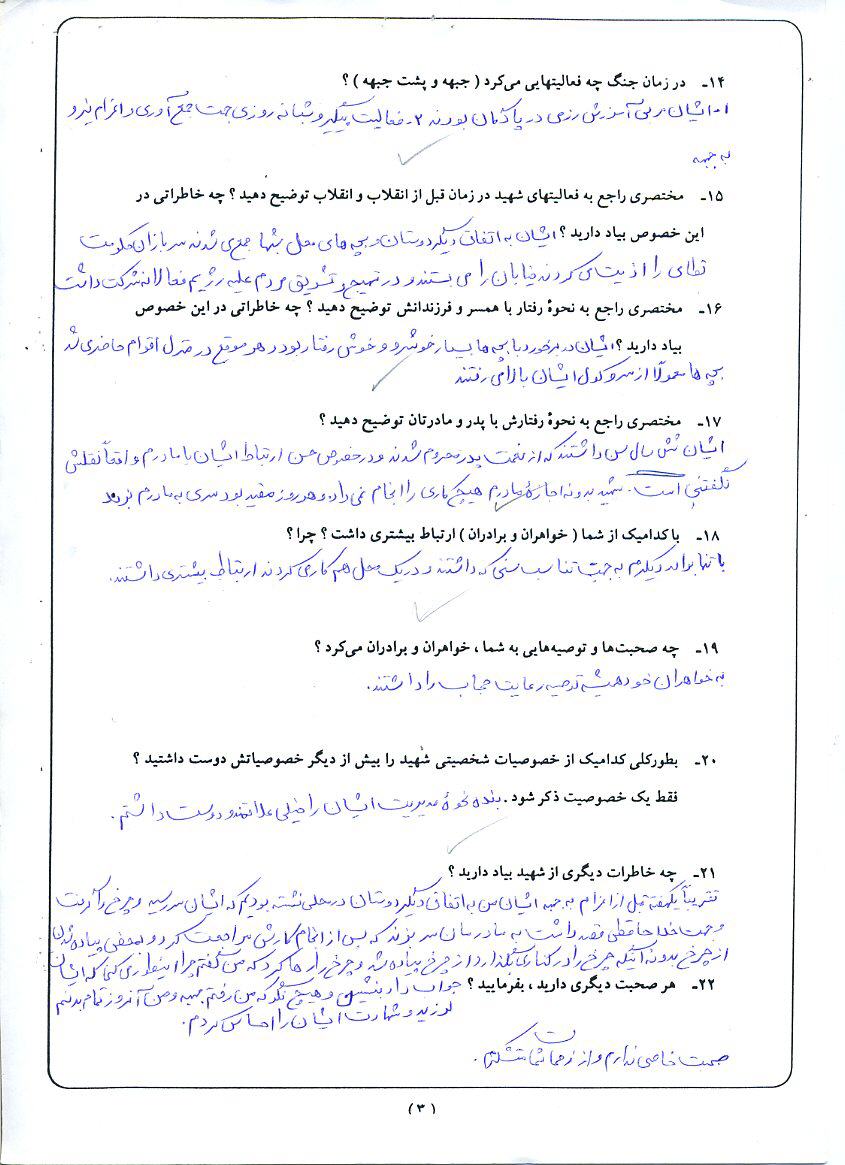 ۱۴ـ در زمان جنگ چه فعالیتهایی می‌کرد ( جبهه و پشت جبهه ) ؟
۱- ایشان مربی آموزش رزمی در پادگان بودند ۲- فعالیت پیگیر و شبانه روزی جهت جمع آوری و اعزام نیرو
به جبهه
۱۵ـ مختصری راجع به فعالیتهای شهید در زمان قبل از انقلاب و انقلاب توضیح دهید ؟ چه خاطراتی در
این خصوص بیاد دارید ؟ ایشان به اتفاق دیگر دوستان و بچه های محل شبها جمع می شدند سربازان حکومت
نظامی را اذیت می کردند خیابان را می بستند و در تهییج و تشویق مردم علیه رژیم فعالانه شرکت داشت
۱۶ـ مختصری راجع به نحوهٔ رفتار با همسر و فرزندانش توضیح دهید ؟ چه خاطراتی در این خصوص
بیاد دارید ؟ ایشان در برخورد با بچه ها بسیار خوشرو و خوش رفتار بود و هر موقع در منزل اقوام حاضر می شد
بچه ها معمولاً از سر و کول ایشان بالا می رفتند
۱۷ـ مختصری راجع به نحوهٔ رفتارش با پدر و مادرتان توضیح دهید ؟
ایشان شش سال سن داشتند که از نعمت پدر محروم شدند و در خصوص حسن ارتباط ایشان با مادرم واقعاً نقلش
نگفتنی است. شهید بدون اجازهٔ مادرم هیچ کاری را انجام نمی داد و هر روز مقید بود سری به مادرم بزند
۱۸ـ با کدامیک از شما ( خواهران و برادران ) ارتباط بیشتری داشت ؟ چرا ؟
با تنها برادر دیگرم به جهت تناسب سنی که داشتند و در یک محل هم کار می کردند ارتباط بیشتری داشتند.
۱۹ـ چه صحبت‌ها و توصیه‌هایی به شما ، خواهران و برادران می‌کرد ؟
به خواهران خود همیشه توصیه رعایت حجاب را داشتند.
۲۰ـ بطورکلی کدامیک از خصوصیات شخصیتی شهید را بیش از دیگر خصوصیاتش دوست داشتید ؟
فقط یک خصوصیت ذکر شود . بنده نحوهٔ مدیریت ایشان را خیلی علاقمند و دوست داشتم.
۲۱ـ چه خاطرات دیگری از شهید بیاد دارید ؟
تقریباً یکهفته قبل از اعزام به جبهه ایشان من به اتفاق دیگر دوستان در محلی نشسته بودیم که ایشان سر رسید و چرخ را گرفت
و جهت خداحافظی قصد داشت به مادرمان سر بزند که پس از انجام کارش مراجعت کرد و به محض پیاده شدن
از چرخ بدون آنکه چرخ را در کناری بگذارد از چرخ پیاده شد و چرخ را رها کرد که من گفتم چرا اینطوری کنی که ایشان
۲۲ـ هر صحبت دیگری دارید ، بفرمایید ؟ جواب داد بنشین و هیچ نگو که من رفتم جبهه و من آنروز تمام بدنم
لرزید و شهادت ایشان را احساس کردم.
صحبت خاصی ندارم و از زحمات شما متشکرم.
( ۳ )